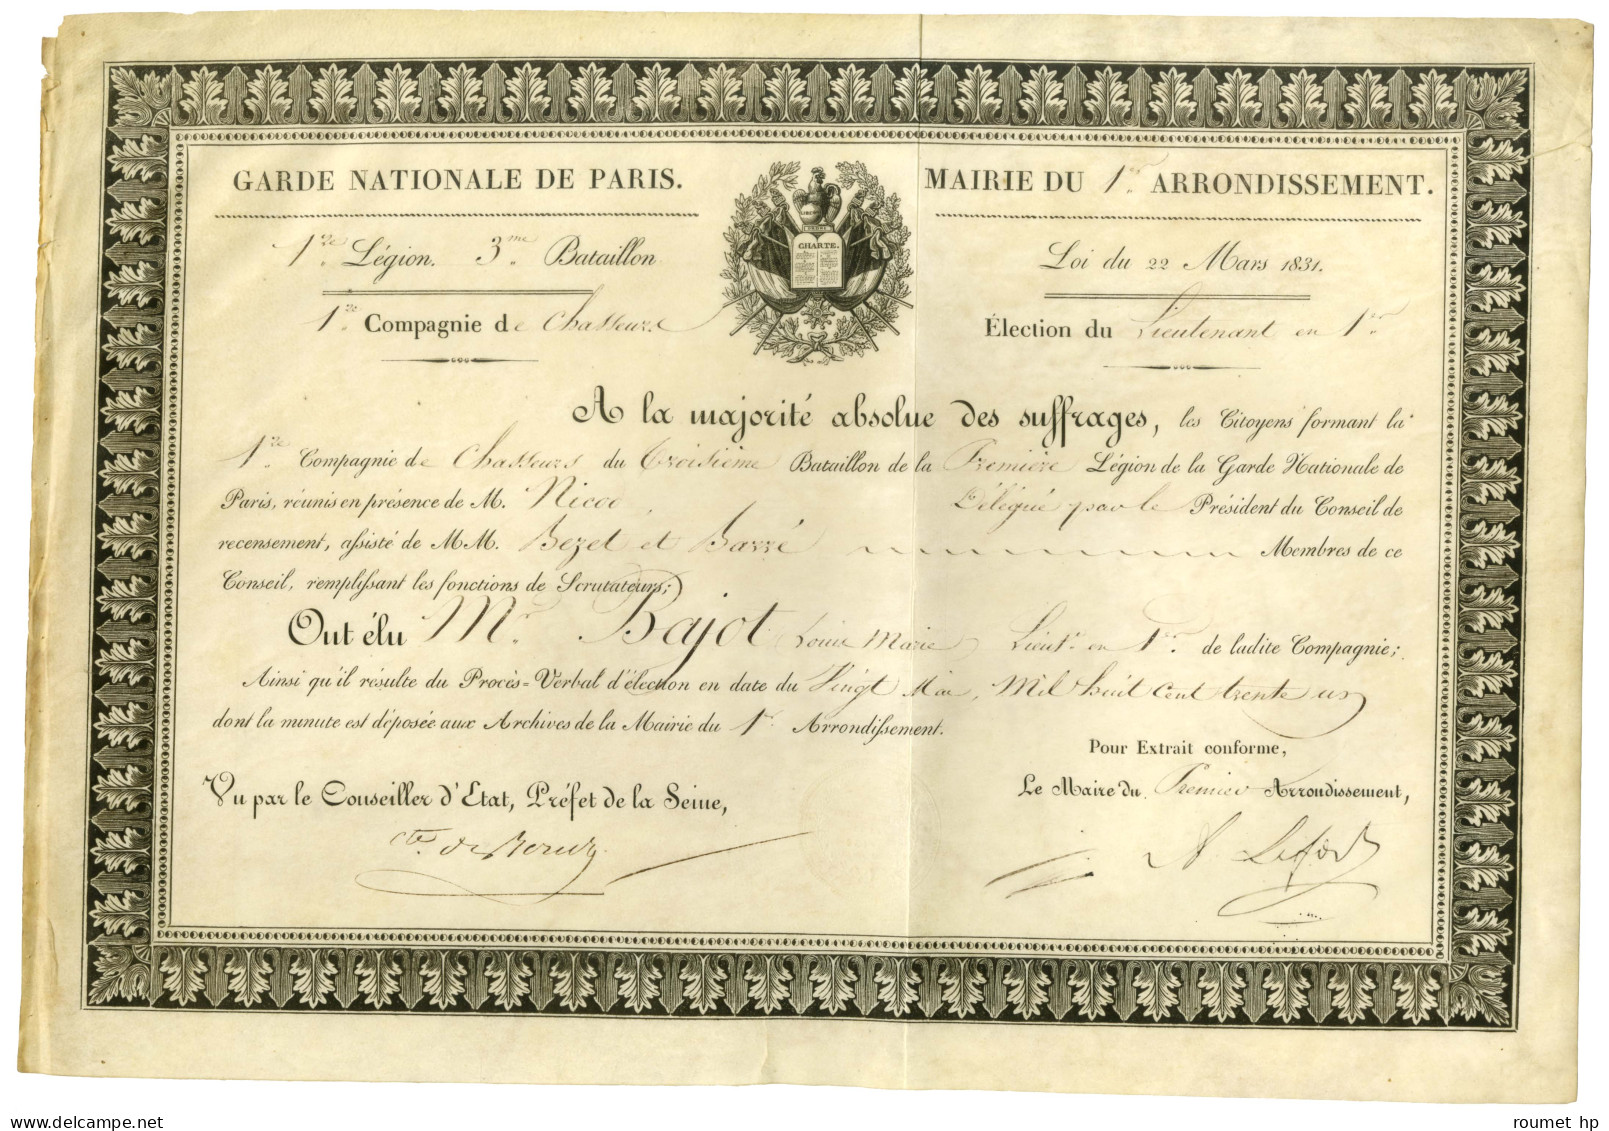 GARDE NATIONALE DE PARIS.
MAIRIE DU 1er ARRONDISSEMENT.
1re Légion. 3me Bataillon
Loi du 22 Mars 1831.
CHARTE.
1re Compagnie de Chasseurs
Élection du Lieutenant en 1er
A la majorité absolue des suffrages, les Citoyens formant la
1re Compagnie de Chasseurs du troisième Bataillon de la Première Légion de la Garde Nationale de
Paris, réunis en présence de M. Délégué par le Président du Conseil de
recensement, assisté de MM. Bezet et Barré Membres de ce
Conseil, remplissant les fonctions de Scrutateurs;
Ont élu Mr Bajot Louis Marie Lieut. en 1er de ladite Compagnie;
Ainsi qu'il résulte du Procès-Verbal d'élection en date du Vingt Mai, Mil huit cent trente un
dont la minute est déposée aux Archives de la Mairie du 1er Arrondissement.
Pour Extrait conforme,
Vu par le Conseiller d'Etat, Préfet de la Seine,
Le Maire du Premier Arrondissement,
Cte de
A. Lefort
roumet hp